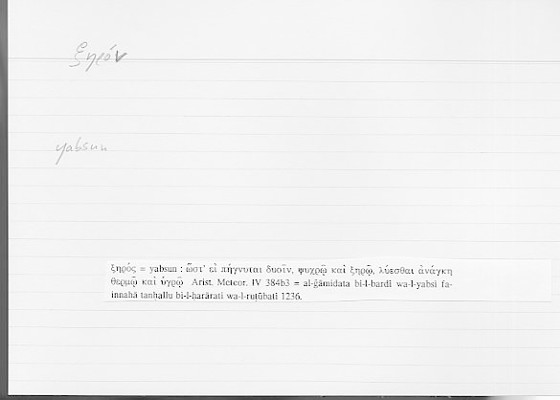 ξηρόν
yabsun
ξηρός = yabsun : ὥστ' εἰ πήγνυται δυοῖν, ψυχρῷ καὶ ξηρῷ, λύεσθαι ἀνάγκη
θερμῷ καὶ ὑγρῷ Arist. Meteor. IV 384b3 = al-ǧāmidata bi-l-bardi wa-l-yabsi fa-
innahā tanḥallu bi-l-ḥarārati wa-l-ruṭūbati 1236.